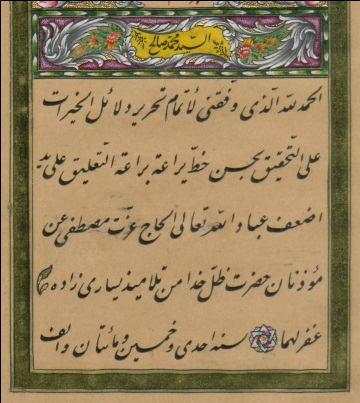 السيد محمد صالح
الحمد لله الذى وفقنى لاتمام تحرير دلائل الخيرات
على التحقيق بحسن خط يراعة براعة التعليق على يد
اضعف عباد الله تعالى الحاج عزت مصطفى عن
مؤذنان حضرت ظل خدا من تلاميذ يسارى زاده
غفر لهما سنه احدى وخمسين ومائتان والف